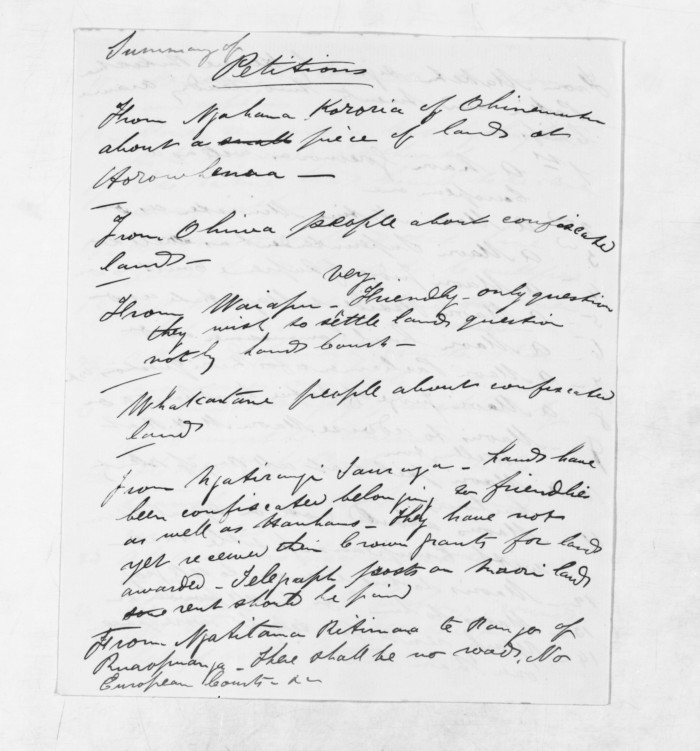 Summary of
Petitions
From Ngahana Kororia of Ohinemutu
about a small piece of land at
Horowhenua —
From Ohiwa people about confiscated
land —
very
From Waiapu — Friendly — only question
they wish to settle lands question
not by Land Court —
Whakatane people about confiscated
land
From Ngatirangi Tauranga — Lands have
been confiscated belonging to friendlies
as well as Hauhaus — They have not
yet received their Crown grants for land
awarded — Telegraph posts on Maori land
rent should be paid
From Ngatitama Ritimana te Rango of
— There shall be no roads. No
European Courts — &c